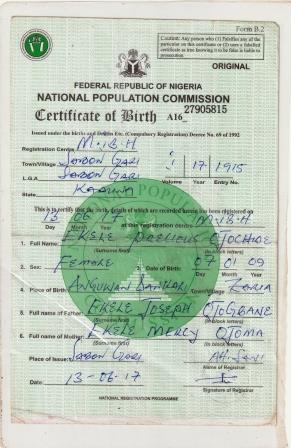 Form B.2
Caution: Any person who (1) Falsifies any of the particular on this certificate or (2) uses a falsified certificate as true knowing it to be false is liable to prosecution.
ORIGINAL
FEDERAL REPUBLIC OF NIGERIA
NATIONAL POPULATION COMMISSION
Certificate of Birth A16_ 27905815
Issued under the Births and Deaths Etc. (Compulsory Registration) Decree No. 69 of 1992
Registration Centre M.I.B.H
Town/Village SABON GARI 1 17 1915
L.G.A SABON GARI Volume Year Entry No.
State KADUNA
This is to certify that the birth, details of which are recorded herein has been registered on
13 06 M.I.B.H
Day Month Year at this registration centre
1. Full Name: EKELE PRECIOUS OJOCHIDE
(Surname first) (In block letters)
2. Sex: FEMALE 3. Date of Birth: 07 01 09
Day Month Year
4. Place of Birth: ANGUWAN ZARIA
Town/Village
5. Full Name of Father: EKELE JOSEPH OJOGBANE
(Surname first) (In block letters)
6. Full Name of Mother: EKELE MERCY OJOMA
(Surname first) (In block letters)
Place of Issue: SABON GARI A.H. SANI
Name of Registrar
Date: 13-06-17
Signature of Registrar
NATIONAL REGISTRATION PROGRAMME